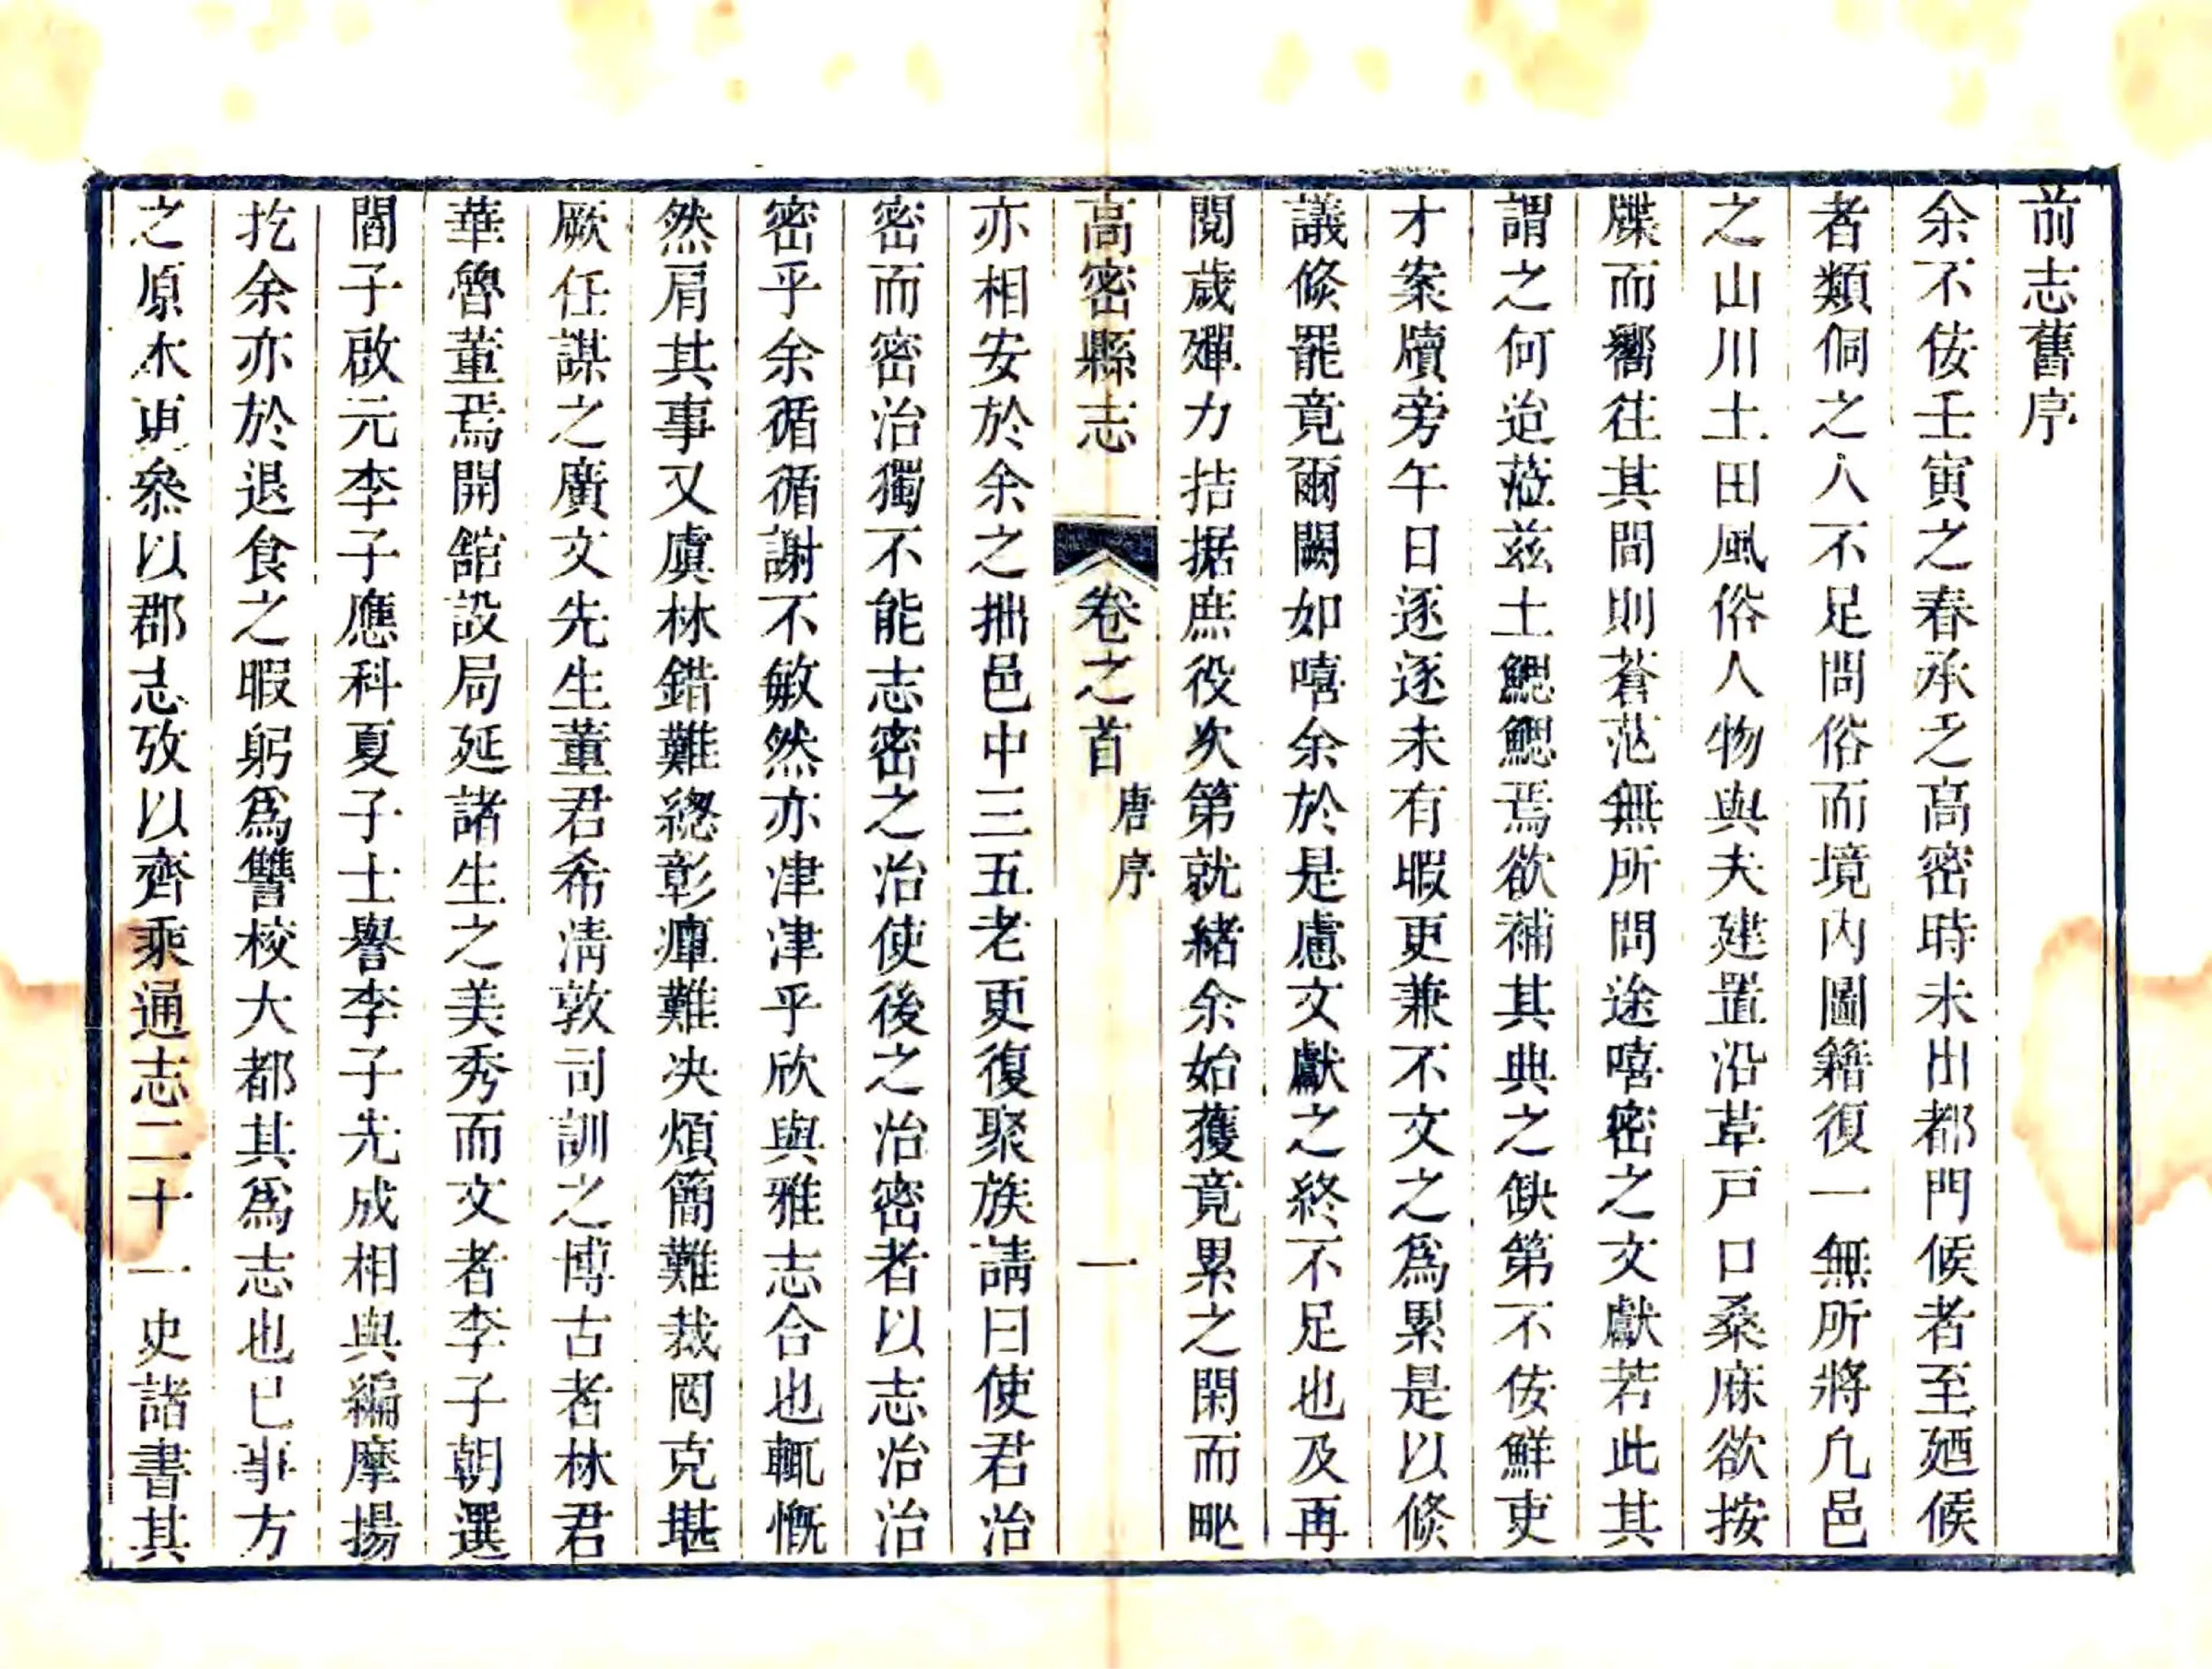 前志舊序
余不佞壬寅之春承乏高密時未出都門候者至廼候
者類侗之人不足問俗而境內圖籍復一無所將凢邑
之山川土田風俗人物與夫建置沿革戸口桑麻欲按
牒而嚮往其間則蒼茫無所問途嘻密之文獻若此其
謂之何迨蒞茲土鰓鰓焉欲補其典之缺第不佞鮮吏
才案牘旁午日逐逐未有暇更兼不文之爲累是以修
議修罷竟爾闕如嘻余於是慮文獻之終不足也及再
閱歲殫力拮据庶役次第就緒余始獲竟累之閑而甿
高密縣志 卷之首 唐序 一
亦相安於余之拙邑中三五老更復聚族請曰使君治
密而密治獨不能志密之治使後之治密者以志治治
密乎余循循謝不敏然亦津津乎欣與雅志合也輒慨
然肩其事又虞林錯難總彰癉難决煩簡難裁罔克堪
厥任謀之廣文先生董君希淸敦司訓之博古者林君
華魯董焉開舘設局延諸生之美秀而文者李子朝選
閻子啟元李子應科夏子士譽李子先成相與編摩揚
扢余亦於退食之暇躬爲讐校大都其爲志也巳事方
之原本更叅以郡志攷以齊乘通志二十一史諸書其